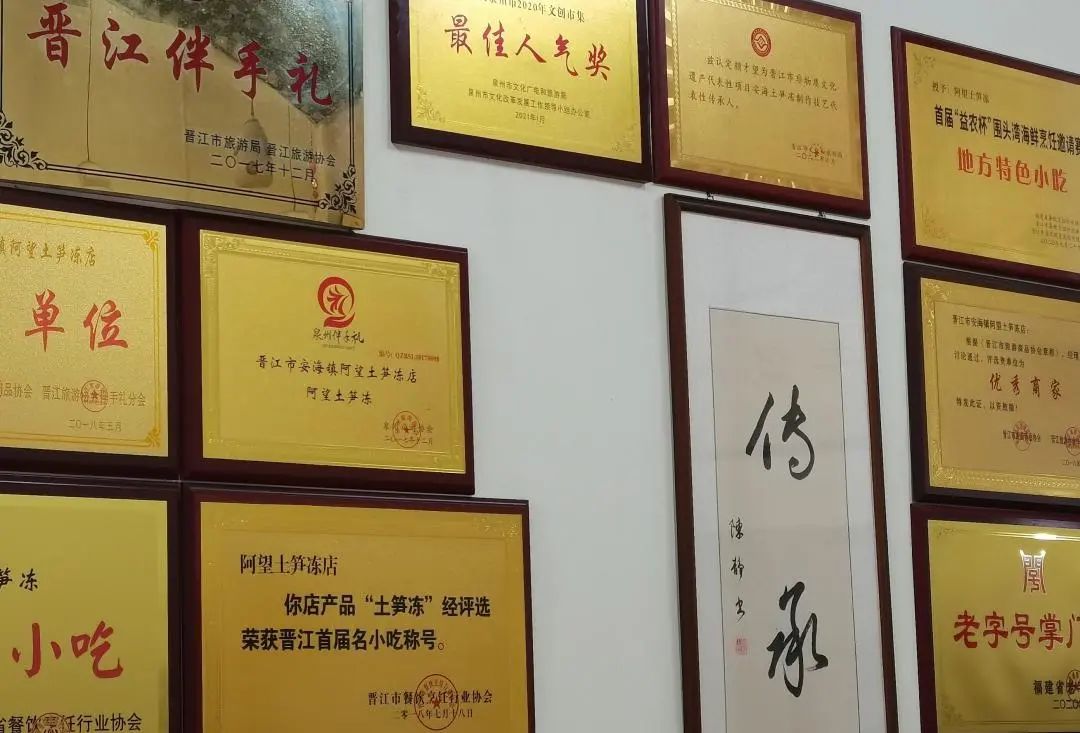 晋江伴手礼
晋江市旅游局 晋江旅游协会
二〇一七年十二月
泉州市2020年文创市集
最佳人气奖
泉州市文化广电和旅游局
泉州市文化改革发展工作领导小组办公室
2021年1月
为晋江市非物质文化
遗产代表性项目安海土笋冻制作技艺代
表性传承人。
授予:阿望土笋冻
首届“益农杯”围头湾海鲜烹饪邀请赛
地方特色小吃
镇阿望土笋冻店
单位
品协会 晋江旅游
手礼分会
二〇一八年五月
泉州伴手礼
晋江市安海镇阿望土笋冻店
阿望土笋冻
二〇一七年十二月
晋江市安海镇阿望土笋冻店:
讨论通过,评选贵单位为
优秀商家
特发此证,以资鼓励!
笋冻
小吃
省餐饮烹饪行业协会
阿望土笋冻店
你店产品“土笋冻”经评选
荣获晋江首届名小吃称号。
晋江市餐饮烹饪行业协会
二〇一八年七月十八日
传承
陳靜書
老字号掌门
福建省